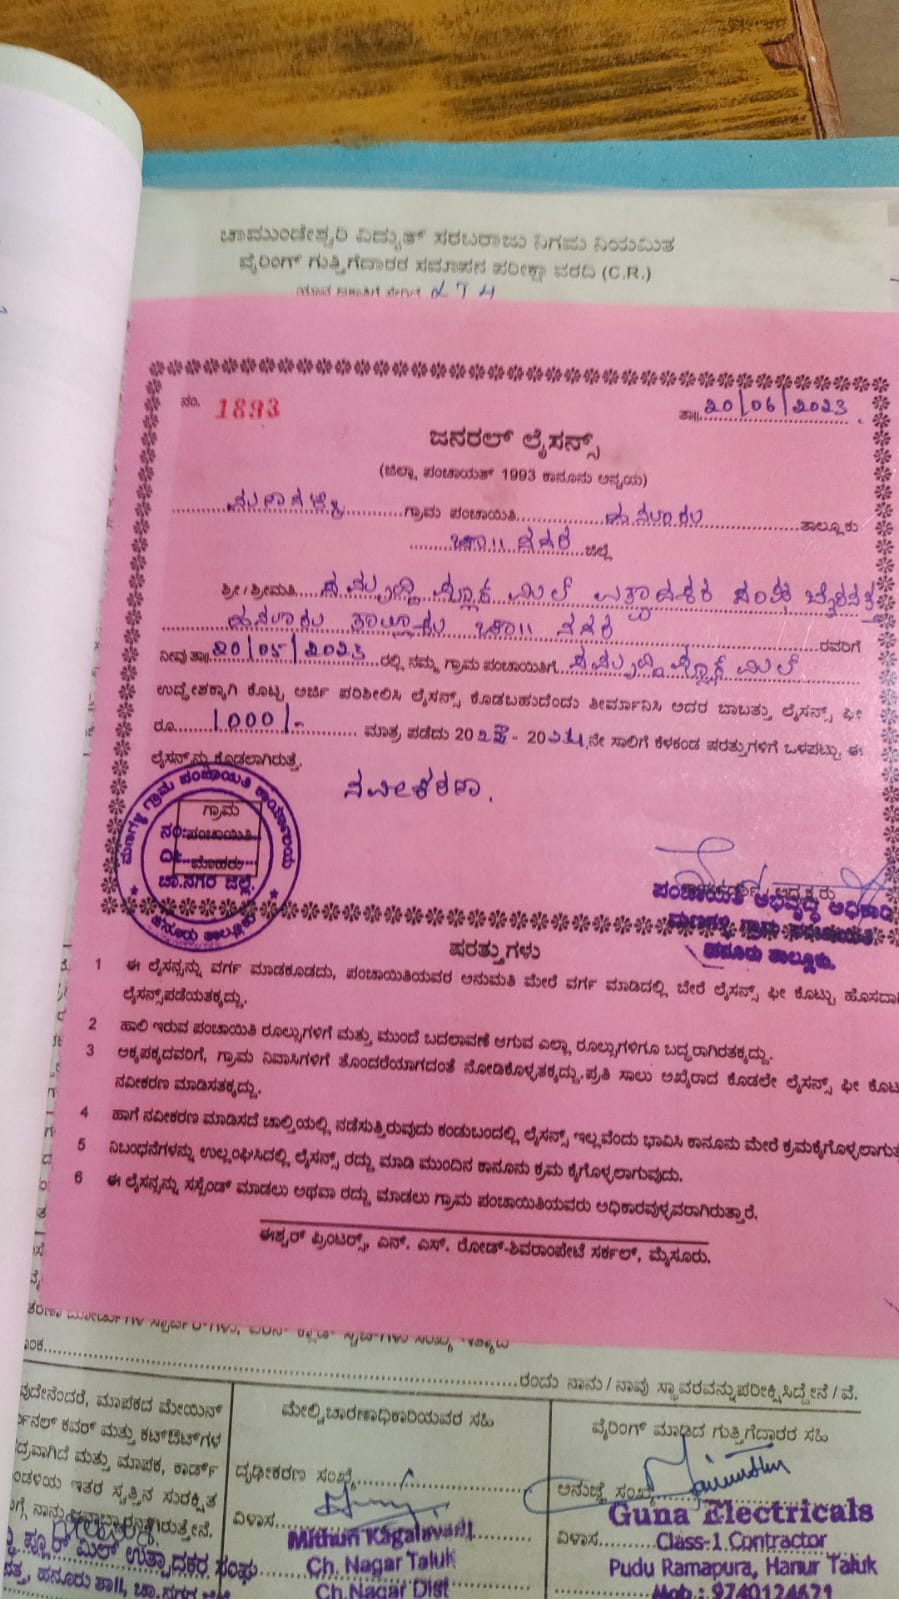 ಚಾಮುಂಡೇಶ್ವರಿ ವಿದ್ಯುತ್ ಸರಬರಾಜು ನಿಗಮ ನಿಯಮಿತ
ವೈರಿಂಗ್ ಗುತ್ತಿಗೆದಾರರ ಸಮಾಪನ ಪರೀಕ್ಷಾ ವರದಿ (C.R.)
ನಂ. 1893 ತಾ|| 20/06/2023
ಜನರಲ್ ಲೈಸನ್ಸ್
(ಜಿಲ್ಲಾ, ಪಂಚಾಯತ್ 1993 ಕಾನೂನು ಅನ್ವಯ)
ಗ್ರಾಮ ಪಂಚಾಯಿತಿ ಹನೂರು ತಾಲ್ಲೂಕು
ಚಾ|| ನಗರ ಜಿಲ್ಲೆ
ಶ್ರೀ/ಶ್ರೀಮತಿ ಸಮೃದ್ಧಿ ಫ್ಲೋರ್ ಮಿಲ್ ಉತ್ಪಾದಕರ ಸಂಘ
ಹನೂರು ತಾಲ್ಲೂಕು ಚಾ|| ನಗರ ರವರಿಗೆ
ನೀವು ತಾ|| 20/05/2023 ರಲ್ಲಿ ನಮ್ಮ ಗ್ರಾಮ ಪಂಚಾಯಿತಿಗೆ ಸಮೃದ್ಧಿ ಫ್ಲೋರ್ ಮಿಲ್
ಉದ್ದೇಶಕ್ಕಾಗಿ ಕೊಟ್ಟ ಅರ್ಜಿ ಪರಿಶೀಲಿಸಿ ಲೈಸನ್ಸ್ ಕೊಡಬಹುದೆಂದು ತೀರ್ಮಾನಿಸಿ ಅದರ ಬಾಬತ್ತು ಲೈಸನ್ಸ್ ಫೀ
ರೂ. 1000/- ಮಾತ್ರ ಪಡೆದು 2023 - 2024 ನೇ ಸಾಲಿಗೆ ಕೆಳಕಂಡ ಷರತ್ತುಗಳಿಗೆ ಒಳಪಟ್ಟು ಈ
ಲೈಸನ್ಸ್‌ನ್ನು ಕೊಡಲಾಗಿರುತ್ತೆ.
ನವೀಕರಣ.
ಗ್ರಾಮ
ಪಂಚಾಯಿತಿ
ಮೊಹರು
ಚಾ.ನಗರ ಜಿಲ್ಲೆ.
ಹನೂರು ತಾಲ್ಲೂಕು
ಪಂಚಾಯತಿ ಅಭಿವೃದ್ಧಿ ಅಧಿಕಾರಿ
ಹನೂರು ತಾಲ್ಲೂಕು.
ಷರತ್ತುಗಳು
1 ಈ ಲೈಸನ್ಸನ್ನು ವರ್ಗ ಮಾಡಕೂಡದು, ಪಂಚಾಯಿತಿಯವರ ಅನುಮತಿ ಮೇರೆ ವರ್ಗ ಮಾಡಿದಲ್ಲಿ ಬೇರೆ ಲೈಸನ್ಸ್ ಫೀ ಕೊಟ್ಟು ಹೊಸದಾಗಿ
ಲೈಸನ್ಸ್‌ಪಡೆಯತಕ್ಕದ್ದು.
2 ಹಾಲಿ ಇರುವ ಪಂಚಾಯಿತಿ ರೂಲ್ಸುಗಳಿಗೆ ಮತ್ತು ಮುಂದೆ ಬದಲಾವಣೆ ಆಗುವ ಎಲ್ಲಾ ರೂಲ್ಸುಗಳಿಗೂ ಬದ್ಧರಾಗಿರತಕ್ಕದ್ದು.
3 ಅಕ್ಕಪಕ್ಕದವರಿಗೆ, ಗ್ರಾಮ ನಿವಾಸಿಗಳಿಗೆ ತೊಂದರೆಯಾಗದಂತೆ ನೋಡಿಕೊಳ್ಳತಕ್ಕದ್ದು. ಪ್ರತಿ ಸಾಲು ಅಖೈರಾದ ಕೂಡಲೇ ಲೈಸನ್ಸ್ ಫೀ ಕೊಟ್ಟು
ನವೀಕರಣ ಮಾಡಿಸತಕ್ಕದ್ದು.
4 ಹಾಗೆ ನವೀಕರಣ ಮಾಡಿಸದೆ ಚಾಲ್ತಿಯಲ್ಲಿ ನಡೆಸುತ್ತಿರುವುದು ಕಂಡುಬಂದಲ್ಲಿ ಲೈಸನ್ಸ್ ಇಲ್ಲವೆಂದು ಭಾವಿಸಿ ಕಾನೂನು ಮೇರೆ ಕ್ರಮಕೈಗೊಳ್ಳಲಾಗು
5 ನಿಬಂಧನೆಗಳನ್ನು ಉಲ್ಲಂಘಿಸಿದಲ್ಲಿ ಲೈಸನ್ಸ್ ರದ್ದು ಮಾಡಿ ಮುಂದಿನ ಕಾನೂನು ಕ್ರಮ ಕೈಗೊಳ್ಳಲಾಗುವುದು.
6 ಈ ಲೈಸನ್ಸನ್ನು ಸಸ್ಪೆಂಡ್ ಮಾಡಲು ಅಥವಾ ರದ್ದು ಮಾಡಲು ಗ್ರಾಮ ಪಂಚಾಯಿತಿಯವರು ಅಧಿಕಾರವುಳ್ಳವರಾಗಿರುತ್ತಾರೆ.
ಈಶ್ವರ್ ಪ್ರಿಂಟರ್ಸ್, ಎನ್. ಎಸ್. ರೋಡ್-ಶಿವರಾಂಪೇಟೆ ಸರ್ಕಲ್, ಮೈಸೂರು.
ರಂದು ನಾನು/ನಾವು ಸ್ಥಾವರವನ್ನುಪರೀಕ್ಷಿಸಿದ್ದೇನೆ/ವೆ.
ವುದೇನೆಂದರೆ, ಮಾಪಕದ ಮೇಯಿನ್
ಕವರ್ ಮತ್ತು ಕಟ್‌ಔಟ್‌ಗಳ
ದ್ರವಾಗಿದೆ ಮತ್ತು ಮಾಪಕ, ಕಾರ್ಡ್
ಇತರ ಸ್ವತ್ತಿನ ಸುರಕ್ಷಿತ
ಫ್ಲೋರ್ ಮಿಲ್ ಉತ್ಪಾದಕರ ಸಂಘ
ಹನೂರು ತಾ||, ಚಾ.ನಗರ
ಮೇಲ್ವಿಚಾರಣಾಧಿಕಾರಿಯವರ ಸಹಿ
ದೃಢೀಕರಣ ಸಂಖ್ಯೆ
ವಿಳಾಸ
Mithun Kagalavadi
Ch. Nagar Taluk
Ch.Nagar Dist
ವೈರಿಂಗ್ ಮಾಡಿದ ಗುತ್ತಿಗೆದಾರರ ಸಹಿ
ಅನುಜ್ಞೆ ಸಂಖ್ಯೆ
Guna Electricals
ವಿಳಾಸ Class-1 Contractor
Pudu Ramapura, Hanur Taluk
Mob : 9740124621